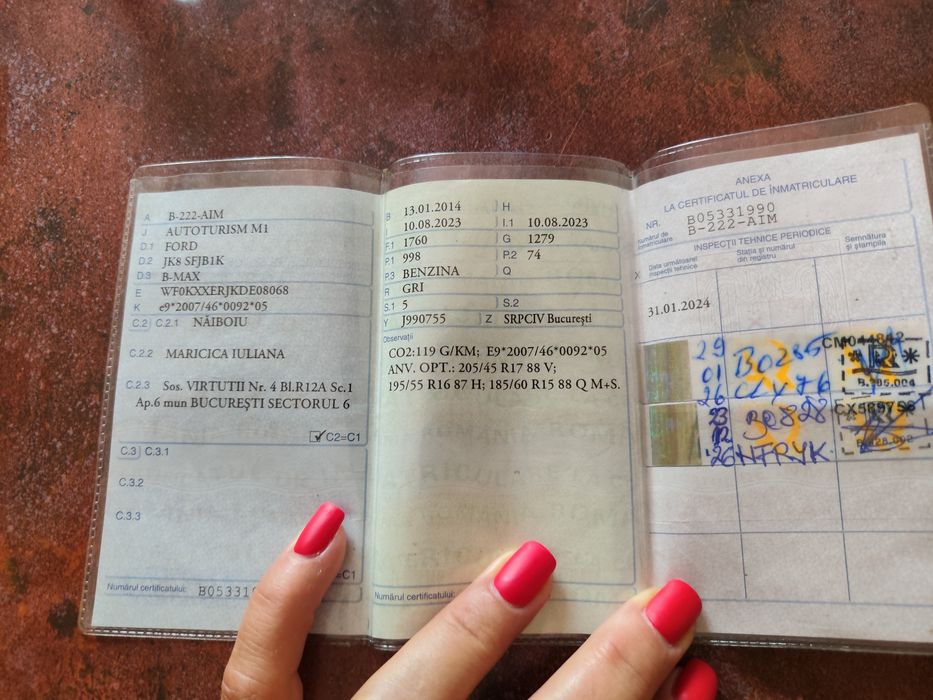 A B-222-AIM
J AUTOTURISM M1
D.1 FORD
D.2 JK8 SFJB1K
D.3 B-MAX
E WF0KXXERJKDE08068
K e9*2007/46*0092*05
C.2 C.2.1 NĂIBOIU
C.2.2 MARICICA IULIANA
C.2.3 Sos. VIRTUTII Nr. 4 Bl.R12A Sc.1
Ap.6 mun BUCUREŞTI SECTORUL 6
C2=C1
C.3 C.3.1
C.3.2
C.3.3
=C1
Numărul certificatului: B05331
B 13.01.2014 H
I 10.08.2023 I.1 10.08.2023
F.1 1760 G 1279
P.1 998 P.2 74
P.3 BENZINA Q
R GRI
S.1 5 S.2
Y J990755 Z SRPCIV Bucureşti
Observaţii
CO2:119 G/KM; E9*2007/46*0092*05
ANV. OPT.: 205/45 R17 88 V;
195/55 R16 87 H; 185/60 R15 88 Q M+S.
Numărul certificatului:
ANEXA
LA CERTIFICATUL DE ÎNMATRICULARE
NR. B05331990
Numărul de înmatriculare B-222-AIM
INSPECŢII TEHNICE PERIODICE
X Data următoarei inspecţii tehnice
Staţia şi numărul din registru
Semnătura şi ştampila
31.01.2024
29 01 26
CM044842
B.285.004
23 12 26
CX589756